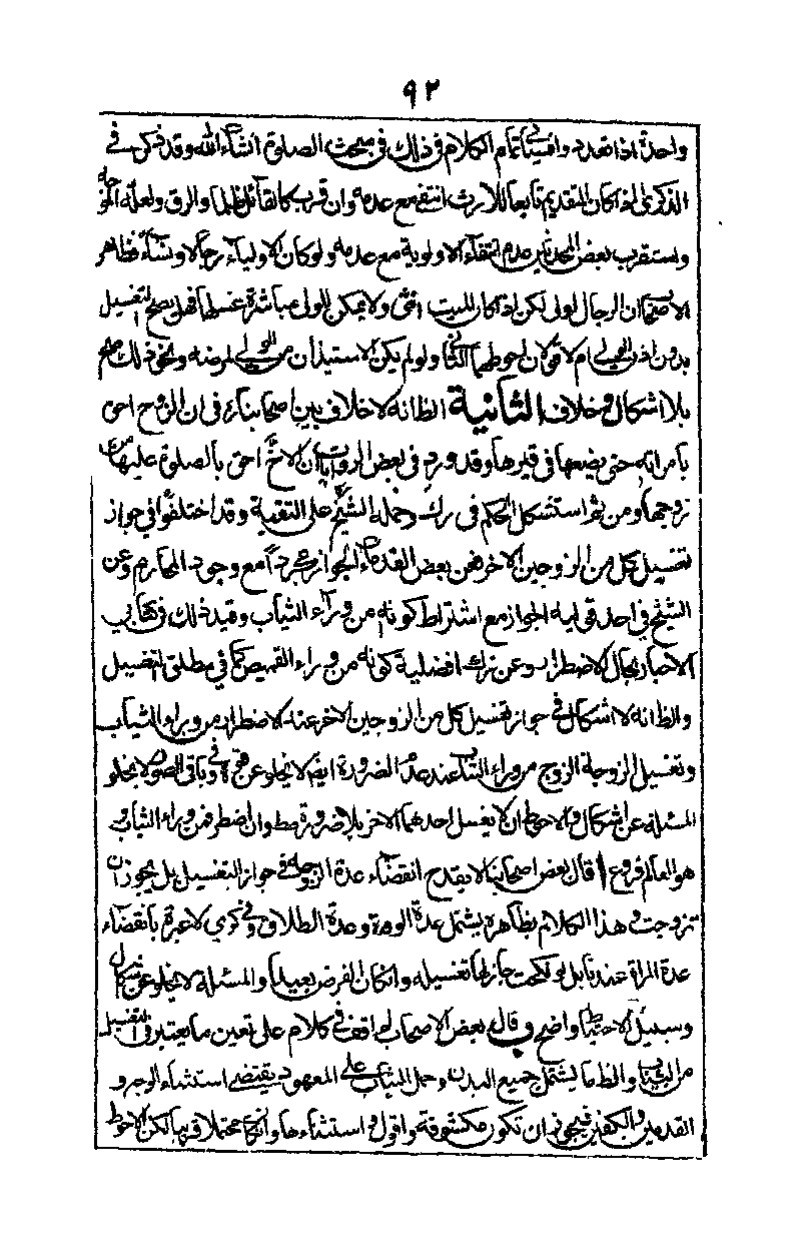 ٩٢
واحدة اذا تعدد وسيأتى تمام الكلام فى ذلك فى مبحث الصلوة انشاء الله وقد ذكر فى
الذكرى اذا كان التقديم تابعا للارث انتفى مع عدمه وان قرب كالقاتل ظلما والرق ولعله
ويستقرب بعض عدم انتفاء الاولوية مع عدمه ولو كان الاولياء رجالا ونساء فظاهر
الاصحاب ان الرجال اولى لكن اذا كان الميت انثى ولا يمكن للولى مباشرة غسلها فهل يصح التغسيل
بدون اذن الولى ام لا قولان احوطهما الثانى ولو لم يكن الاستيذان من الولى لمرضه ونحو ذلك صح
بلا اشكال وخلاف الثانية الظ انه لا خلاف بين اصحابنا ره فى ان الزوج احق
بامراته حتى يضعها فى قبرها وقد ورد فى بعض الروايات ان الاخ احق بالصلوة عليها من
زوجها ومن ثم استشكل الحكم فى رك وحمله الشيخ على التقية وقد اختلفوا فى جواز
تغسيل كل من الزوجين الاخر فعن بعض القدماء الجواز مجردا مع وجود المحارم وعن
الشيخ فى احد قوليه الجواز مع اشتراط كونه من وراء الثياب وقيد ذلك فى كتابى
الاخبار بحال الاضطرار وعن رك افضلية كونه من وراء القميص كما فى مطلق التغسيل
والظ انه لا اشكال فى جواز تغسيل كل من الزوجين الاخر عند الاضطرار من وراء الثياب
وتغسيل الزوجة الزوج من وراء الثياب عند عدم الضرورة ايضا لا يخلو عن قوة وفى باقى الصور لا يخلو
المسئلة عن اشكال والاحوط ان لا يغسل احدهما الاخر بلا ضرورة مط وان اضطر فمن وراء الثياب و
هو العالم فروع ا قال بعض اصحابنا لا يقدح انقضاء عدة الزوجة فى جواز التغسيل بل يجوز ان
تزوجت وهذا الكلام بظاهره يشمل عدة الوفاة وعدة الطلاق وفى كرى لا عبرة بانقضاء
عدة المراة عندنا بل لو نكحت جاز لها تغسيله وان كان الفرض بعيدا والمسئلة لا يخلو عن اشكال
وسبيل الاحتياط واضح ب قال بعض الاصحاب لم اقف فى كلام على تعين ما يعتبر فى التغسيل
من الثياب والظ ما يشتمل جميع البدن وحمل الثياب على المعهود يقتضى استثناء الوجه و
القدمين والكفين فيجوز ان تكون مكشوفة واقول واستثناءها وان كان محتملا قريبا لكن الاحوط